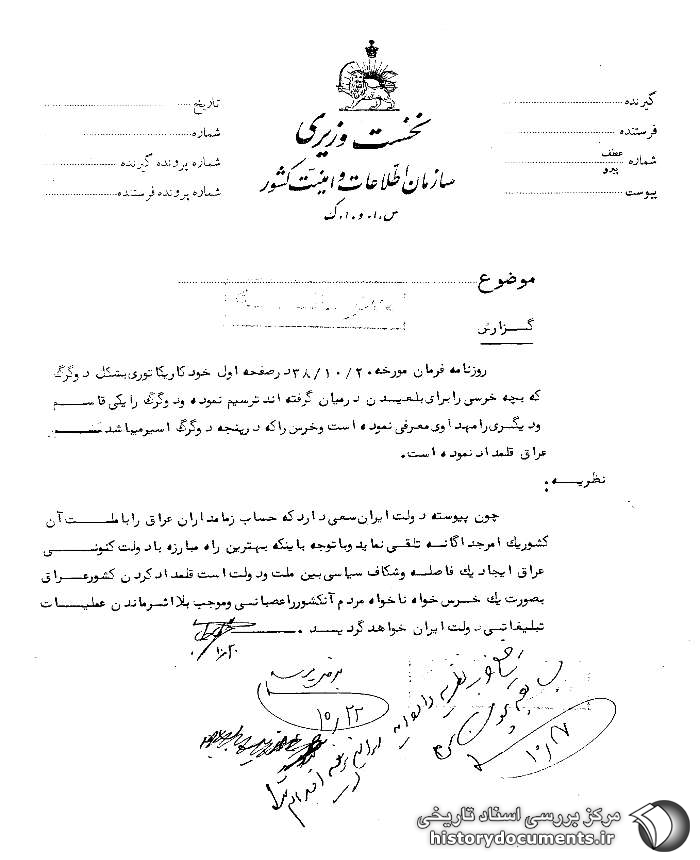 نخست وزیری
سازمان اطلاعات و امنیت کشور
س.ا.و.ا.ک
گیرنده
فرستنده
شماره عطف پیرو
پیوست
تاریخ
شماره
شماره پرونده گیرنده
شماره پرونده فرستنده
موضوع
گزارش
روزنامه فرمان مورخه ۳۸/۱۰/۲۰ در صفحه اول خود کاریکاتوری بشکل دو گرگ
که بچه خرسی را برای بلعیدن در میان گرفته اند ترسیم نموده و دو گرگ را یکی قاسم
و دیگری را مهداوی معرفی نموده است و خرس را که در پنجه دو گرگ اسیر میباشد
عراق قلمداد نموده است.
نظریه :
چون پیوسته دولت ایران سعی دارد که حساب زمامداران عراق را با ملت آن
کشور یك امر جداگانه تلقی نماید و با توجه باینکه بهترین راه مبارزه با دولت کنونی
عراق ایجاد یك فاصله و شکاف سیاسی بین ملت و دولت است قلمداد کردن کشور عراق
بصورت یك خرس خواه ناخواه مردم آنکشور را عصبانی و موجب بلااثر ماندن عملیات
تبلیغاتی دولت ایران خواهد گردید .
۱۰/۲۰
۱۰/۲۲
مرکز بررسی اسناد تاریخی
historydocuments.ir